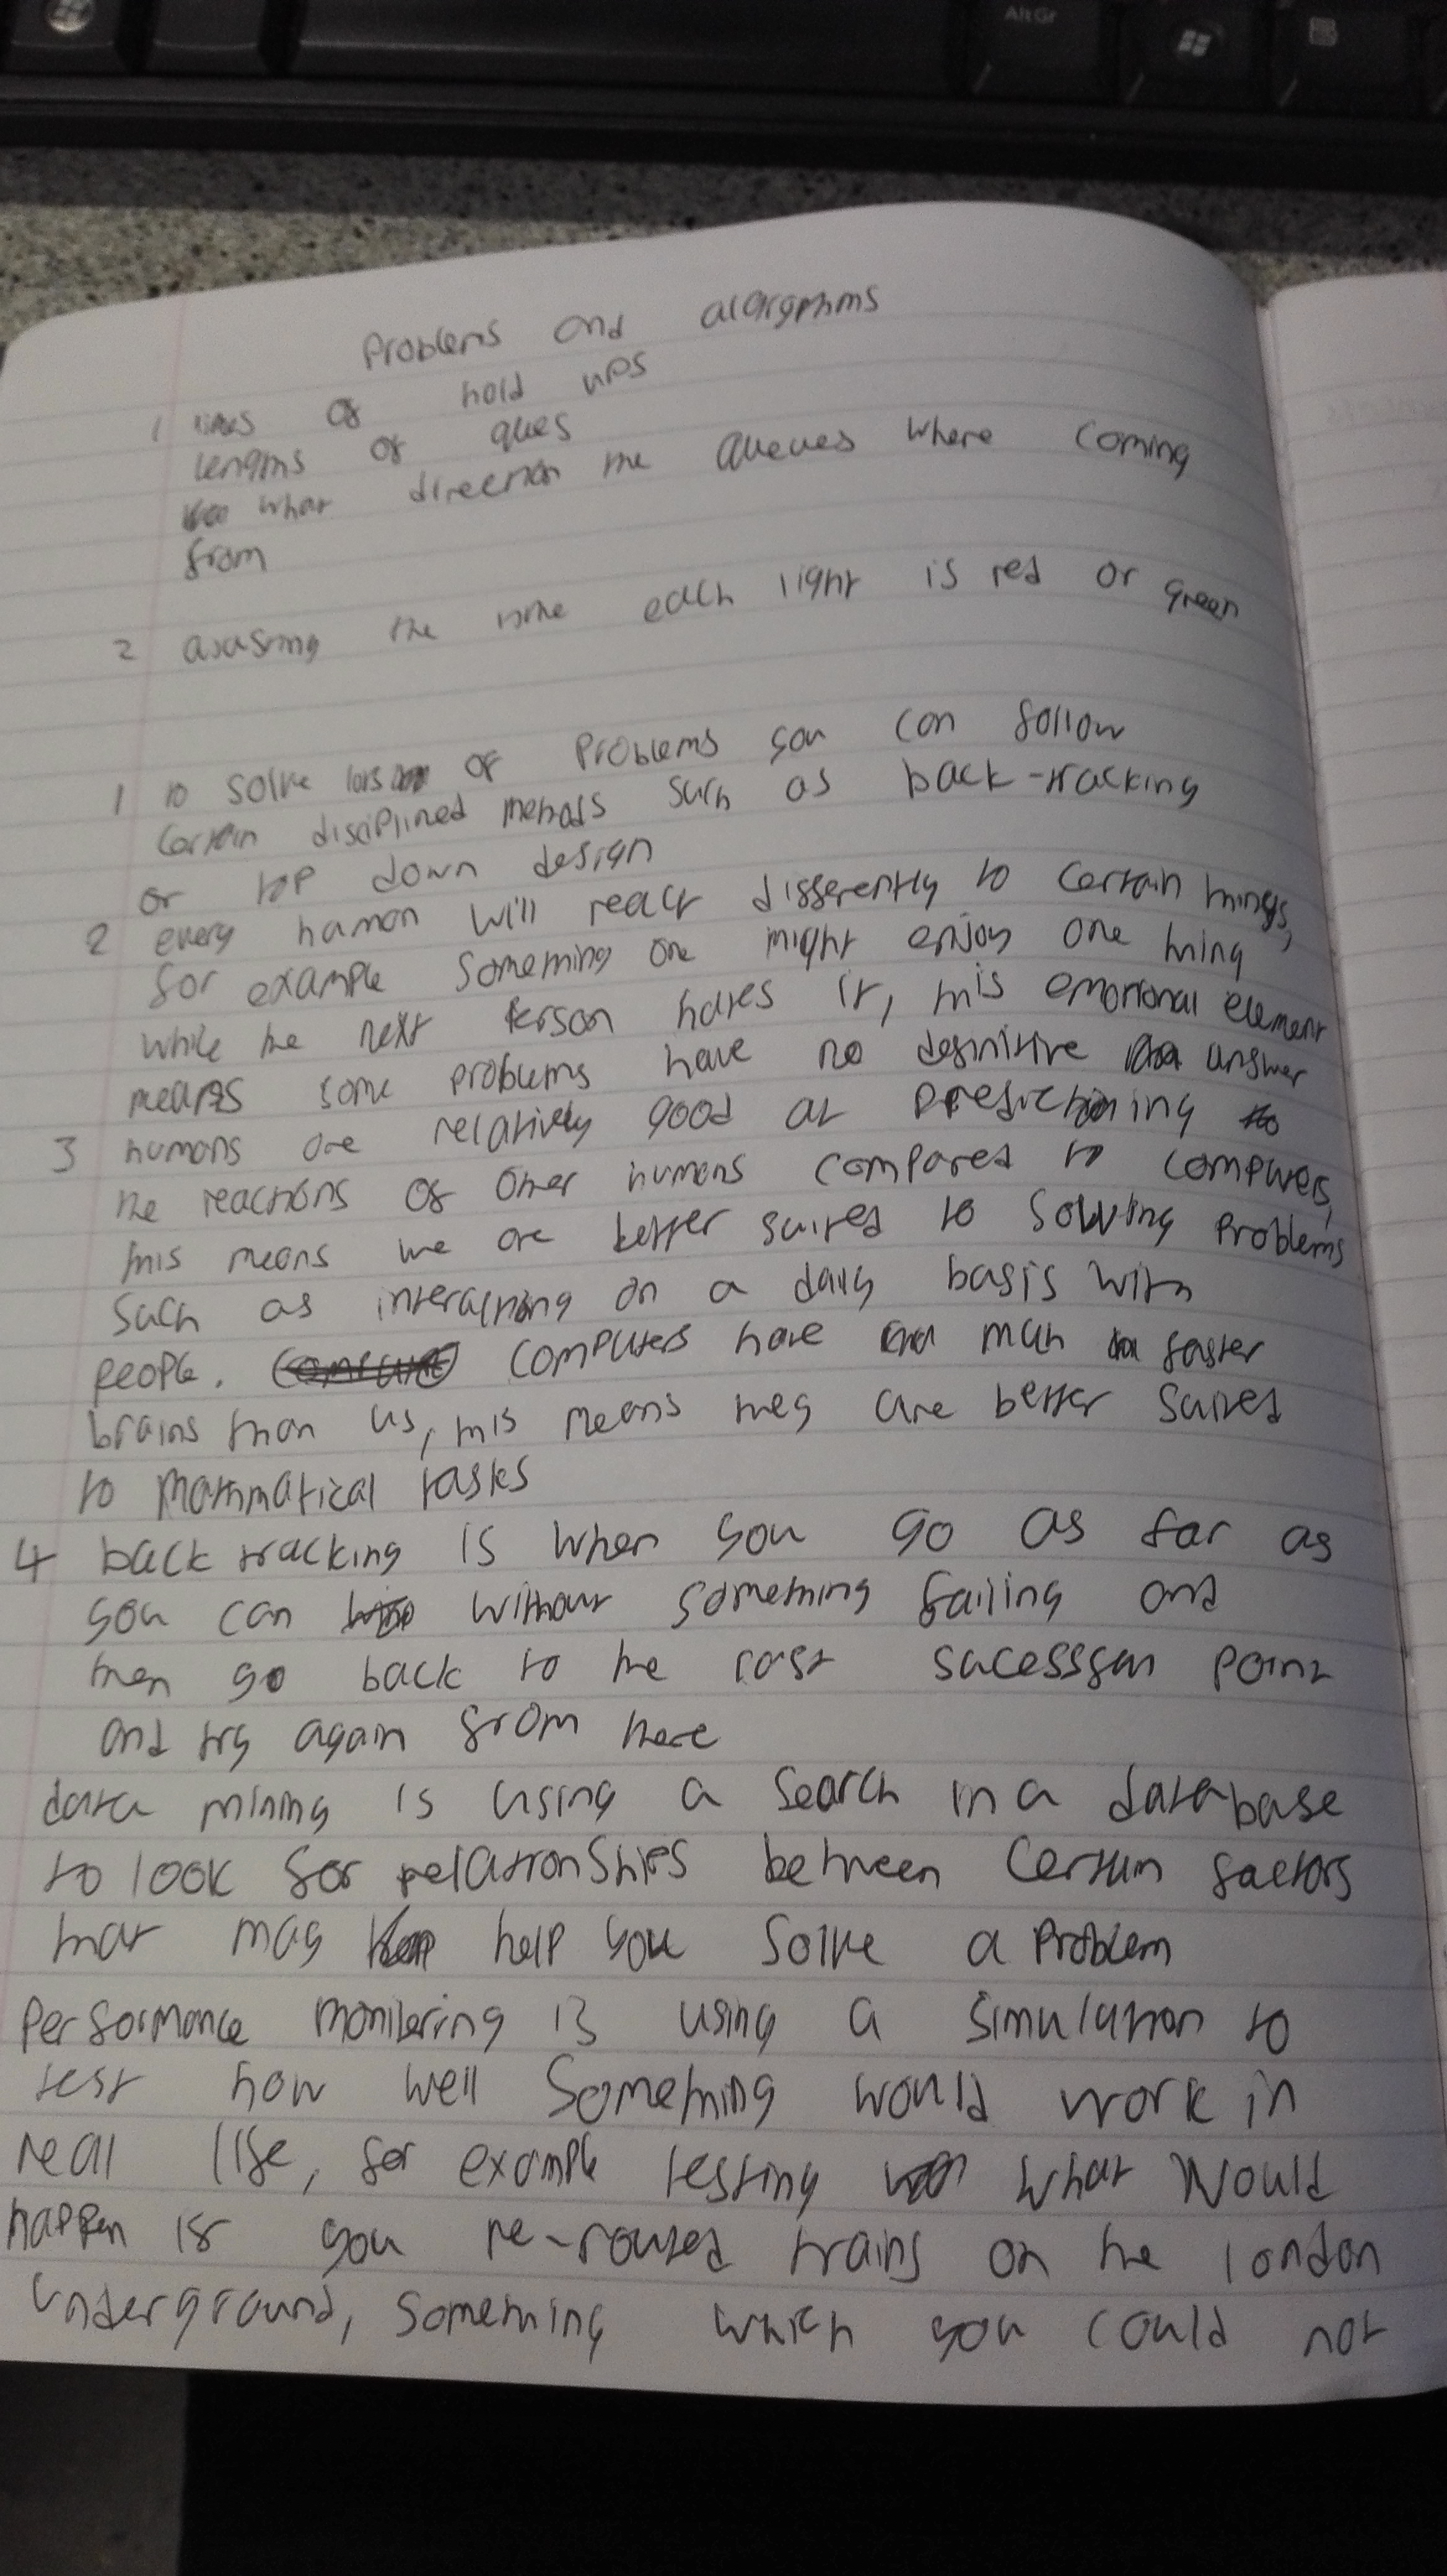 AltGr
Problems and algorgphms
1 times of hold ups
lengths of ques
what direction the queues where coming
from
2 the time each light is red or green
1 to solve lots of problems you can follow
certain disciplined methods such as back-tracking
or top down design
2 every human will react differently to certain things,
for example something one might enjoy one thing
while the next person hates it, this emotional element
means some problems have no definitive answer
3 humans are relatively good at predictioning
the reactions of other humans compared to computers,
this means we are better suited to solving problems
such as interacting on a daily basis with
people. computers have much faster
brains than us, this means they are better suited
to mathmatical tasks
4 back tracking is when you go as far as
you can without something failing and
then go back to the last sucessful point
and try again from there
data mining is using a search in a database
to look for relationships between certain factors
that may help you solve a problem
performance monitering is using a simulation to
test how well something would work in
real life, for example testing what would
happen if you re-routed trains on the london
underground, something which you could not